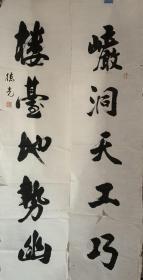 巖洞天工巧
樓臺地勢幽
德光